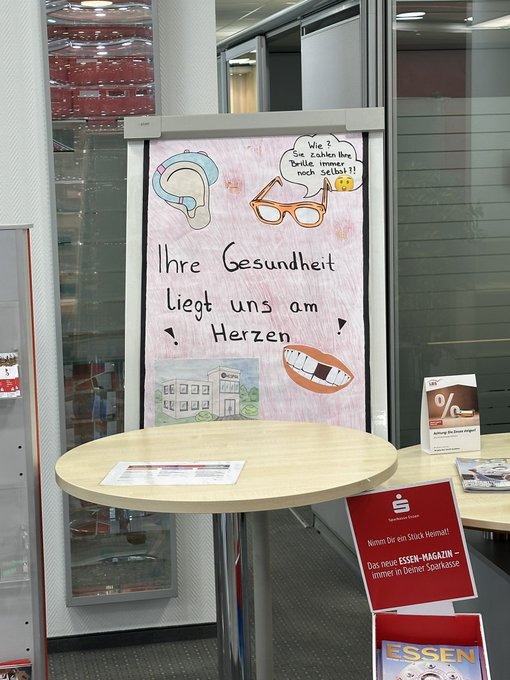 Wie ?
Sie zahlen Ihre
Brille immer
noch selbst?!
Ihre Gesundheit
liegt uns am
! Herzen !
LBS
%
Achtung! Die Zinsen steigen!
Sparkasse Essen
Nimm Dir ein Stück Heimat!
Das neue ESSEN-MAGAZIN –
immer in Deiner Sparkasse
ESSEN